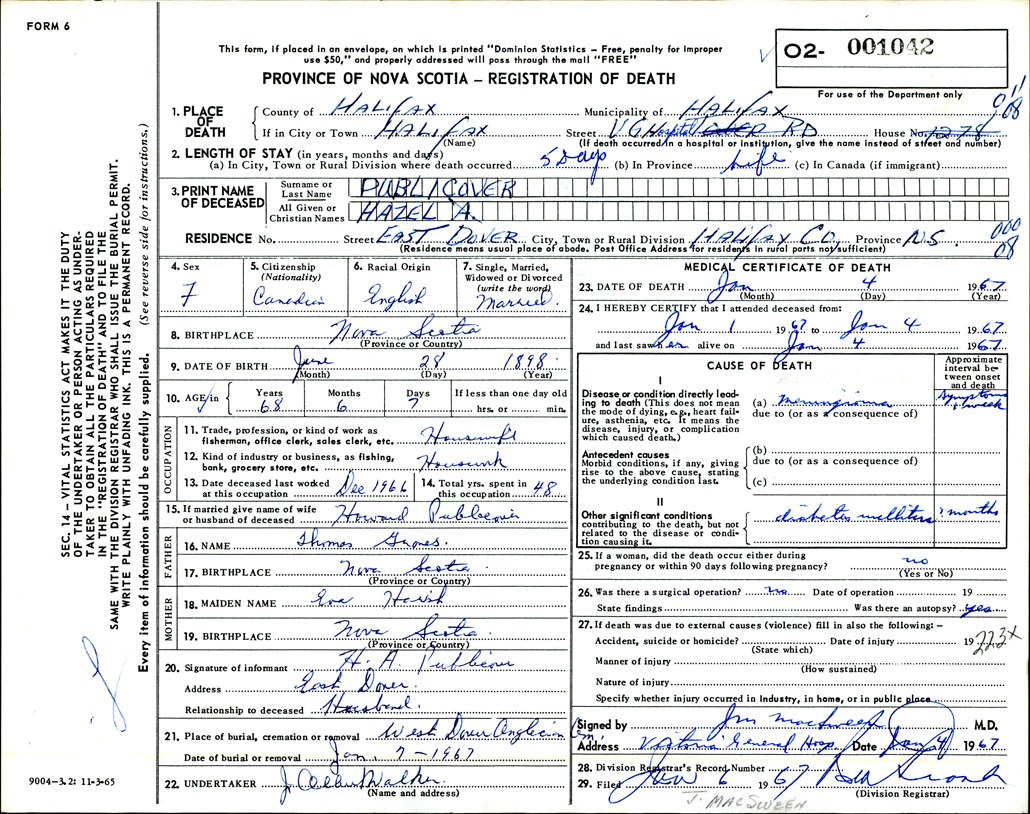 FORM 6
This form, if placed in an envelope, on which is printed "Dominion Statistics – Free, penalty for improper
use $50," and properly addressed will pass through the mail "FREE"
PROVINCE OF NOVA SCOTIA – REGISTRATION OF DEATH
O2- 001042
For use of the Department only
SEC. 14 – VITAL STATISTICS ACT MAKES IT THE DUTY
OF THE UNDERTAKER OR PERSON ACTING AS UNDER-
TAKER TO OBTAIN ALL THE PARTICULARS REQUIRED
IN THE "REGISTRATION OF DEATH" AND TO FILE THE
SAME WITH THE DIVISION REGISTRAR WHO SHALL ISSUE THE BURIAL PERMIT.
WRITE PLAINLY WITH UNFADING INK. THIS IS A PERMANENT RECORD.
Every item of information should be carefully supplied. (See reverse side for instructions.)
1. PLACE OF DEATH
County of HALIFAX Municipality of HALIFAX 08
If in City or Town HALIFAX Street V G Hospital RD House No. 1278
(Name) (If death occurred in a hospital or institution, give the name instead of street and number)
2. LENGTH OF STAY (in years, months and days)
(a) In City, Town or Rural Division where death occurred 5 Days (b) In Province Life (c) In Canada (if immigrant)
3. PRINT NAME OF DECEASED
Surname or Last Name PUBLICOVER
All Given or Christian Names HAZEL A.
RESIDENCE No. Street EAST DOVER City, Town or Rural Division HALIFAX CO, Province N.S. 000
(Residence means usual place of abode. Post Office Address for residents in rural parts not sufficient) 08
4. Sex F
5. Citizenship (Nationality) Canadian
6. Racial Origin English
7. Single, Married, Widowed or Divorced (write the word) Married
8. BIRTHPLACE Nova Scotia
(Province or Country)
9. DATE OF BIRTH June 28 1898
(Month) (Day) (Year)
10. AGE in Years 68 Months 6 Days 7 If less than one day old hrs. or min.
OCCUPATION
11. Trade, profession, or kind of work as fisherman, office clerk, sales clerk, etc. Housewife
12. Kind of industry or business, as fishing, bank, grocery store, etc. Housework
13. Date deceased last worked at this occupation Dec 1966
14. Total yrs. spent in this occupation 48
15. If married give name of wife or husband of deceased Howard Publicover
FATHER
16. NAME Thomas Graves.
17. BIRTHPLACE Nova Scotia
(Province or Country)
MOTHER
18. MAIDEN NAME Eva
19. BIRTHPLACE Nova Scotia.
(Province or Country)
20. Signature of informant H. A. Publicover
Address East Dover.
Relationship to deceased Husband.
21. Place of burial, cremation or removal West Dover Anglican Cem
Date of burial or removal Jan, 7 – 1967
22. UNDERTAKER J. Allan Walker.
(Name and address)
9004–3.2: 11-3-65
MEDICAL CERTIFICATE OF DEATH
23. DATE OF DEATH Jan 4 1967
(Month) (Day) (Year)
24. I HEREBY CERTIFY that I attended deceased from:
Jan 1 1967 to Jan 4 1967
and last saw her alive on Jan 4 1967
CAUSE OF DEATH
Approximate interval between onset and death
I
Disease or condition directly leading to death (This does not mean the mode of dying, e.g., heart failure, asthenia, etc. It means the disease, injury, or complication which caused death.)
(a) meningioma symptoms 1 week
due to (or as a consequence of)
Antecedent causes
Morbid conditions, if any, giving rise to the above cause, stating the underlying condition last.
(b)
due to (or as a consequence of)
(c)
II
Other significant conditions contributing to the death, but not related to the disease or condition causing it.
diabetes mellitus ? months
25. If a woman, did the death occur either during pregnancy or within 90 days following pregnancy? no
(Yes or No)
26. Was there a surgical operation? no Date of operation 19
State findings Was there an autopsy? yes
27. If death was due to external causes (violence) fill in also the following: –
Accident, suicide or homicide? Date of injury 19
(State which) 223X
Manner of injury
(How sustained)
Nature of injury
Specify whether injury occurred in Industry, in home, or in public place
Signed by J M MacSween M.D.
Address Victoria General Hosp. Date Jan 4 1967
28. Division Registrar's Record Number
29. Filed Jan 6 1967
(Division Registrar)
J. MACSWEEN